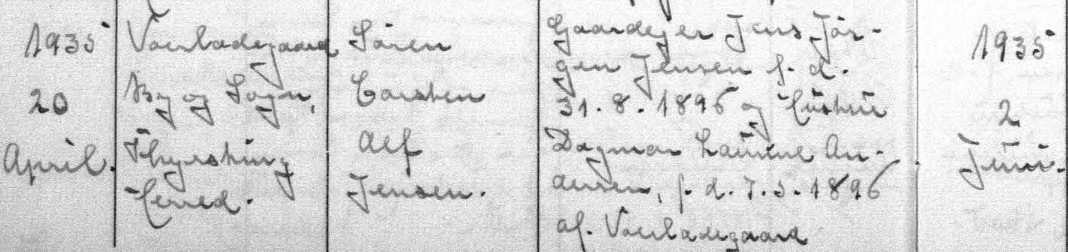 1935
20
April.
Voerladegaard
By og Sogn,
Thyrsting
Herred.
Søren
Carsten
Alf
Jensen.
Gaardejer Jens Jør-
gen Jensen f. d.
31. 8. 1895 og Hustru
Dagmar Laurine An-
dersen, f. d. 7. 3. 1896
af Voerladegaard
1935
2
Juni.